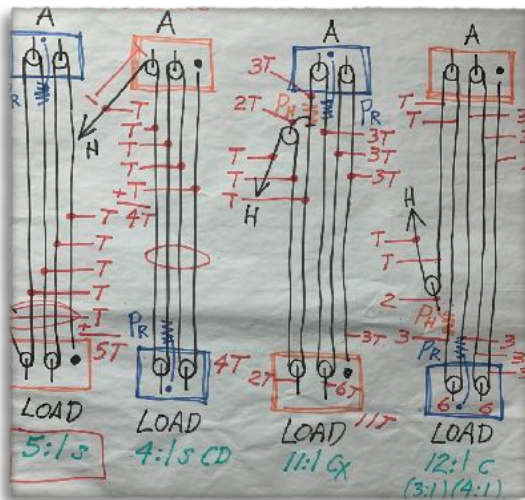 A
PR
T
T
T
T
+T
5T
LOAD
5:1 S
A
T
H
T
T
T
+T
4T
PR
4T
LOAD
4:1 S CD
A
3T
2T
PH
PR
T
T
T
H
3T
3T
3T
3T
2T
6T
LOAD
11T
11:1 CX
A
T
T
3
3
H
T
T
2
PH
PR
3
3
3
6
6
LOAD
12:1 C
(3:1)(4:1)